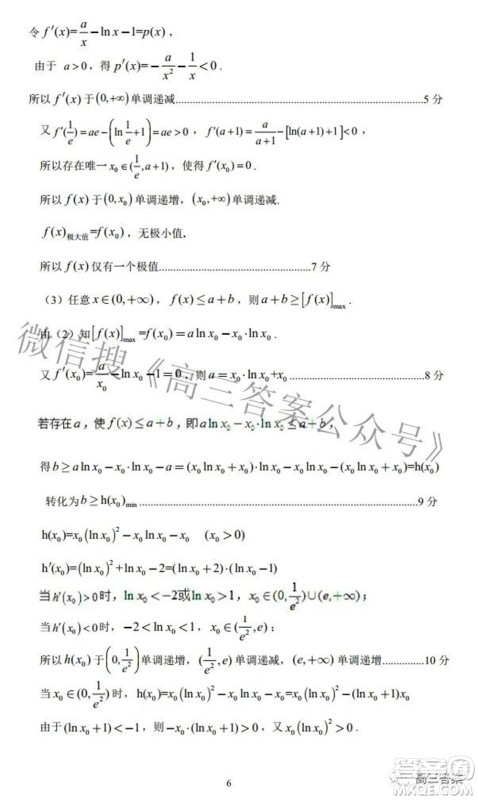 令 f′(x)=a/x−ln x−1=p(x)，
由于 a>0，得 p′(x)=−a/x²−1/x<0．
所以 f′(x) 于 (0,+∞) 单调递减.............5 分
又 f′(1/e)=ae−(ln 1/e+1)=ae>0， f′(a+1)=a/(a+1)−[ln(a+1)+1]<0，
所以存在唯一 x₀∈(1/e,a+1)，使得 f′(x₀)=0．
所以 f(x) 于 (0,x₀) 单调递增，(x₀,+∞) 单调递减.
f(x)极大值=f(x₀)，无极小值.
所以 f(x) 仅有一个极值.............7 分
（3）任意 x∈(0,+∞)， f(x)≤a+b，则 a+b≥[f(x)]max．
由（2）知 [f(x)]max=f(x₀)=a ln x₀−x₀·ln x₀．
又 f′(x₀)=a/x₀−ln x₀−1=0，则 a=x₀·ln x₀+x₀.............8 分
若存在 a，使 f(x)≤a+b，即 a ln x₀−x₀·ln x₀≤a+b，
得 b≥a ln x₀−x₀·ln x₀−a=(x₀ ln x₀+x₀)·ln x₀−x₀·ln x₀−(x₀·ln x₀+x₀)=h(x₀)
转化为 b≥h(x₀)min.............9 分
h(x₀)=x₀(ln x₀)²−x₀ ln x₀−x₀ (x₀>0)
h′(x₀)=(ln x₀)²+ln x₀−2=(ln x₀+2)·(ln x₀−1)
当 h′(x₀)>0 时，ln x₀<−2或ln x₀>1，x₀∈(0,1/e²)∪(e,+∞)；
当 h′(x₀)<0 时，−2<ln x₀<1， x₀∈(1/e²,e)；
所以 h(x₀) 于 (0,1/e²) 单调递增，(1/e²,e) 单调递减，(e,+∞) 单调递增.............10 分
当 x₀∈(0,1/e²) 时，h(x₀)=x₀(ln x₀)²−x₀ ln x₀−x₀=x₀(ln x₀)²−x₀·(ln x₀+1)x₀
由于 (ln x₀+1)<−1，则 −x₀·(ln x₀+1)>0，又 x₀(ln x₀)²>0，
6
微信搜《高三答案公众号》
高三答案
答案圈
MXQE.COM